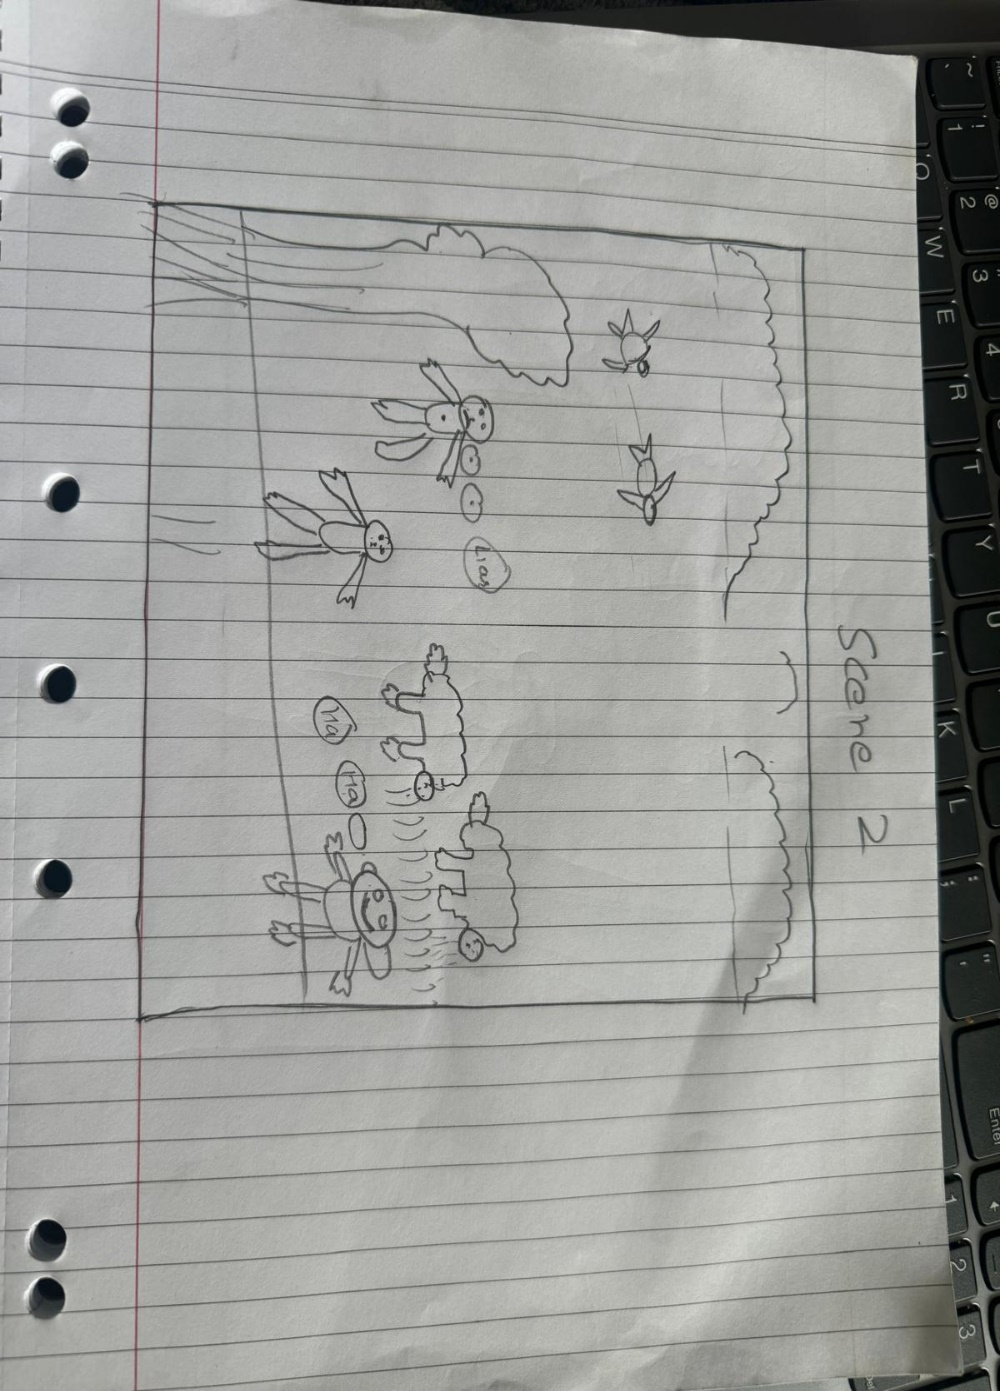 Scene 2
Liar
Ha
Ha
~ ! @
` 1 2 3 4
Q W E R T Y U K L
Enter
1 2 3